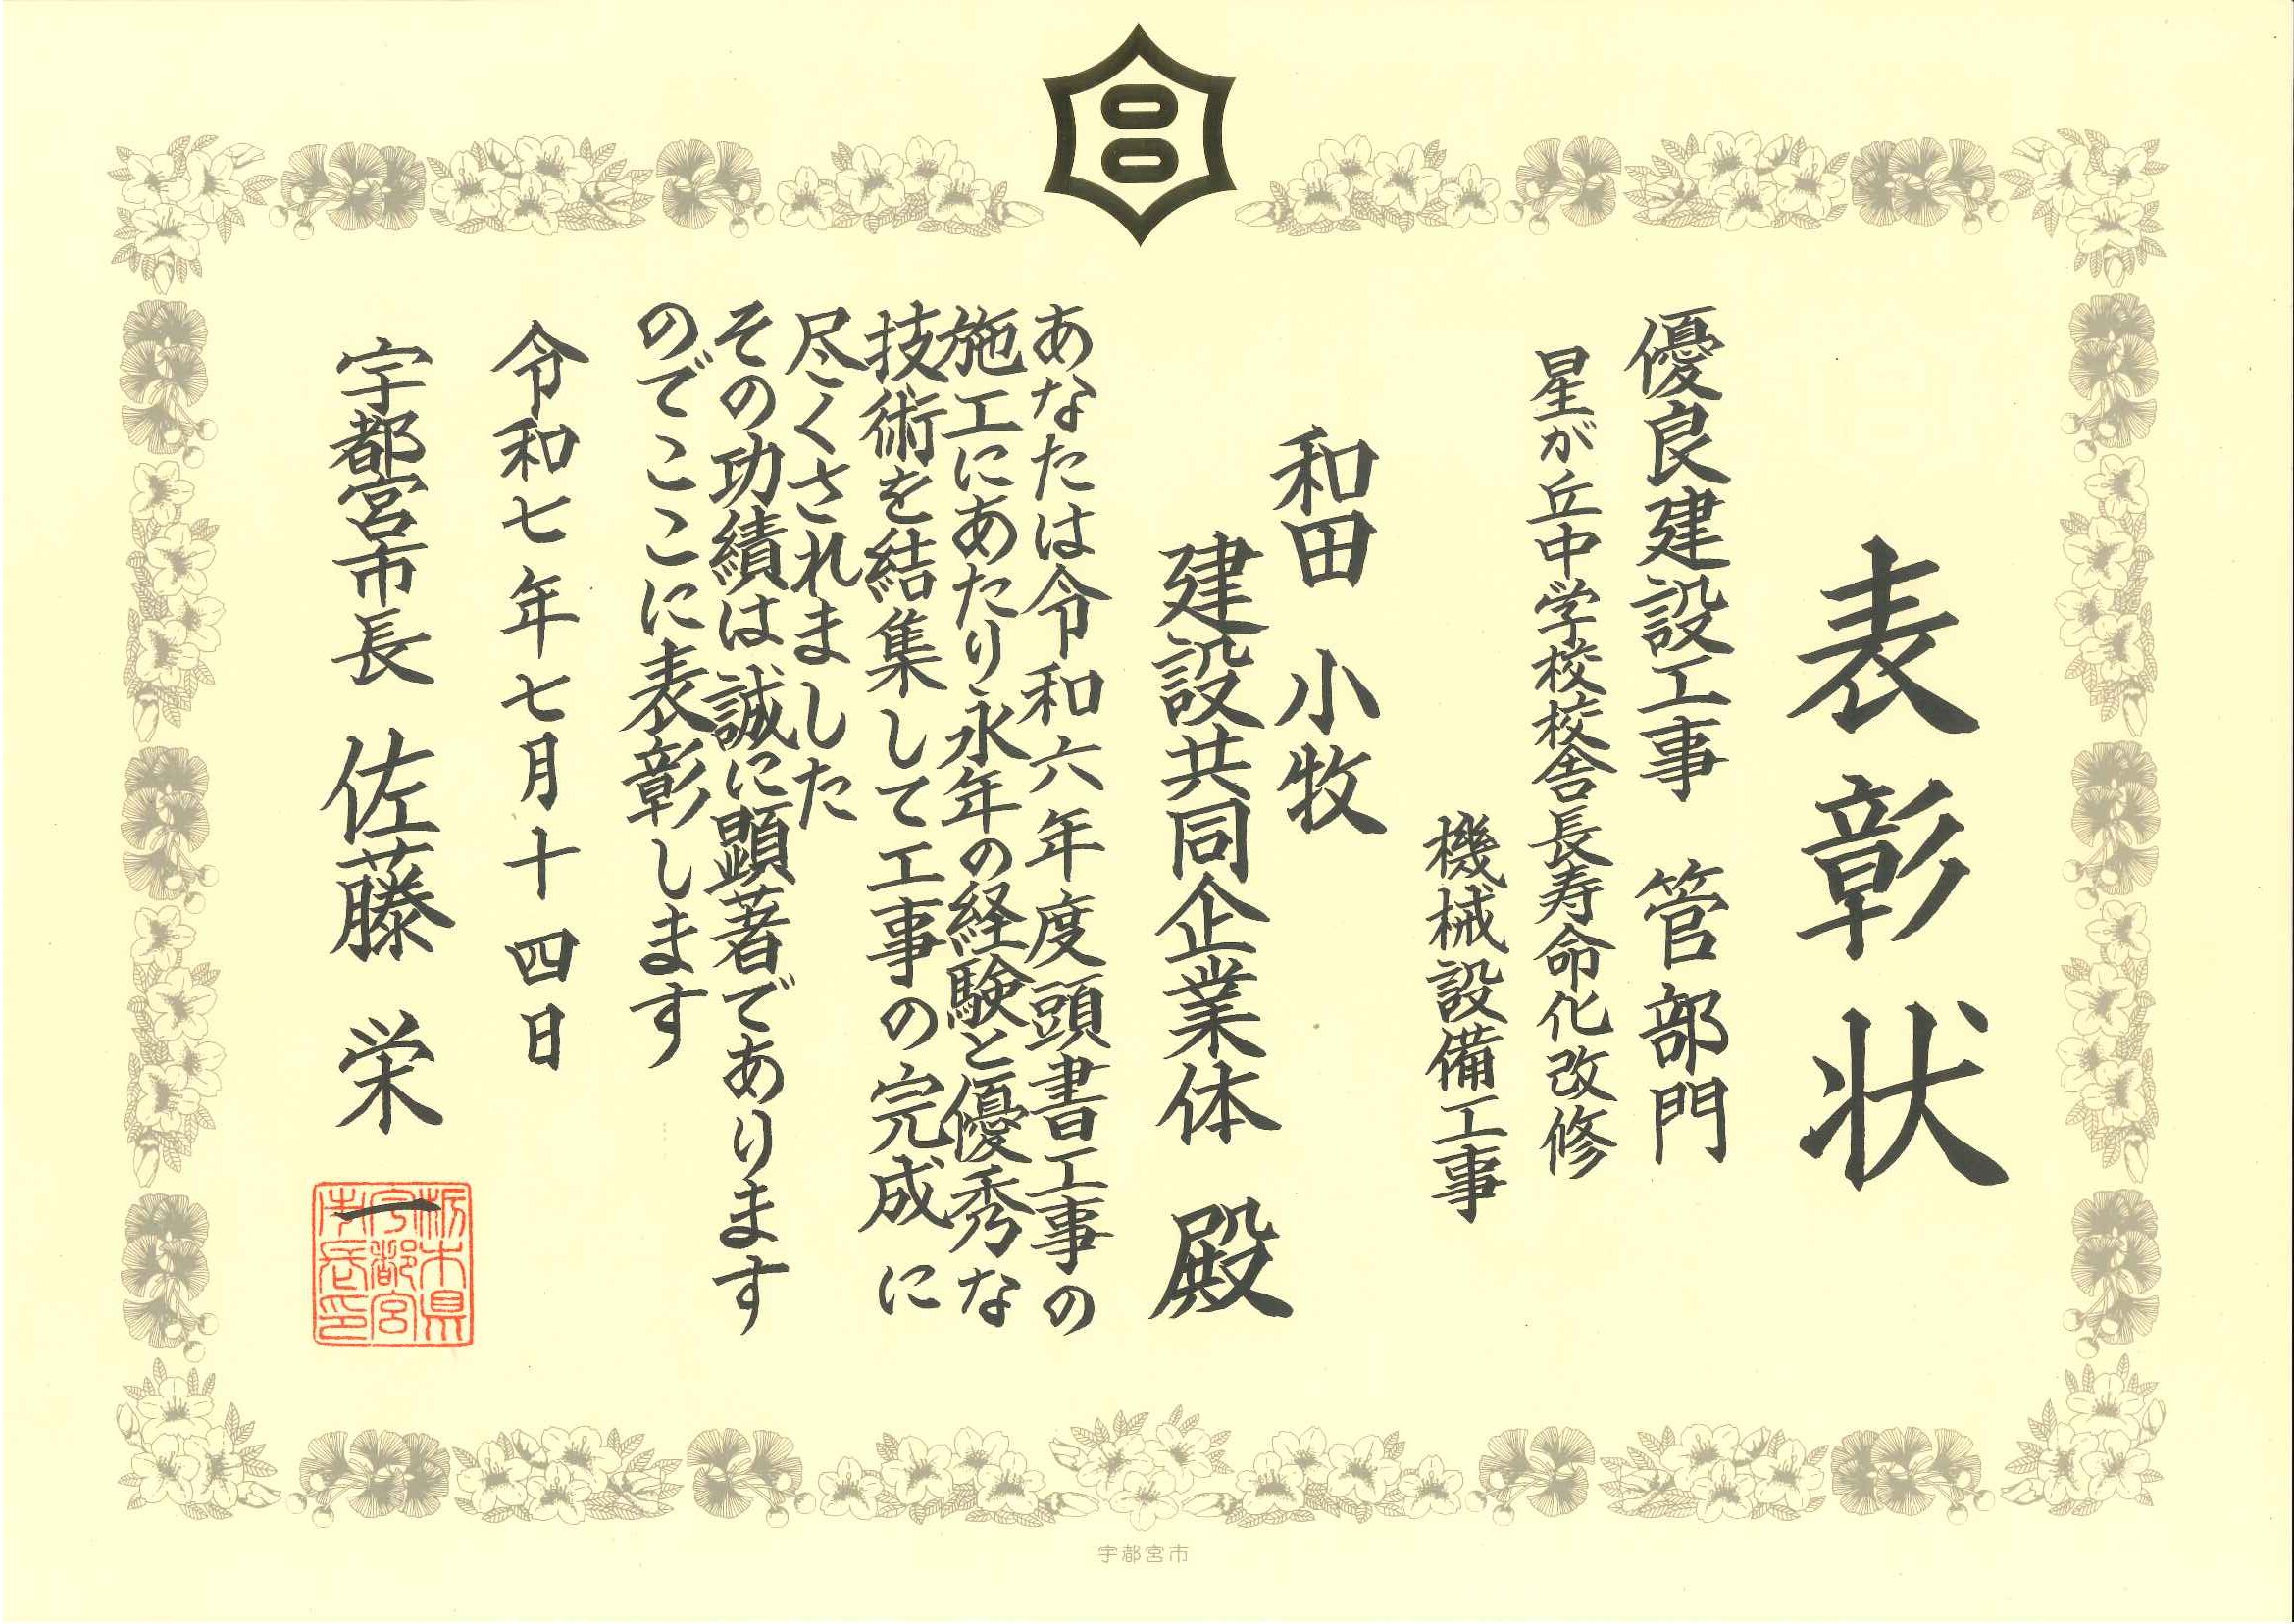 表彰状
優良建設工事 管部門
星が丘中学校校舎長寿命化改修
機械設備工事
和田 小牧
建設共同企業体 殿
あなたは令和六年度頭書工事の
施工にあたり永年の経験と優秀な
技術を結集して工事の完成に
尽くされました
その功績は誠に顕著であります
のでここに表彰します
令和七年七月十四日
宇都宮市長 佐藤 栄一
栃木県
宇都宮
市長印
宇都宮市